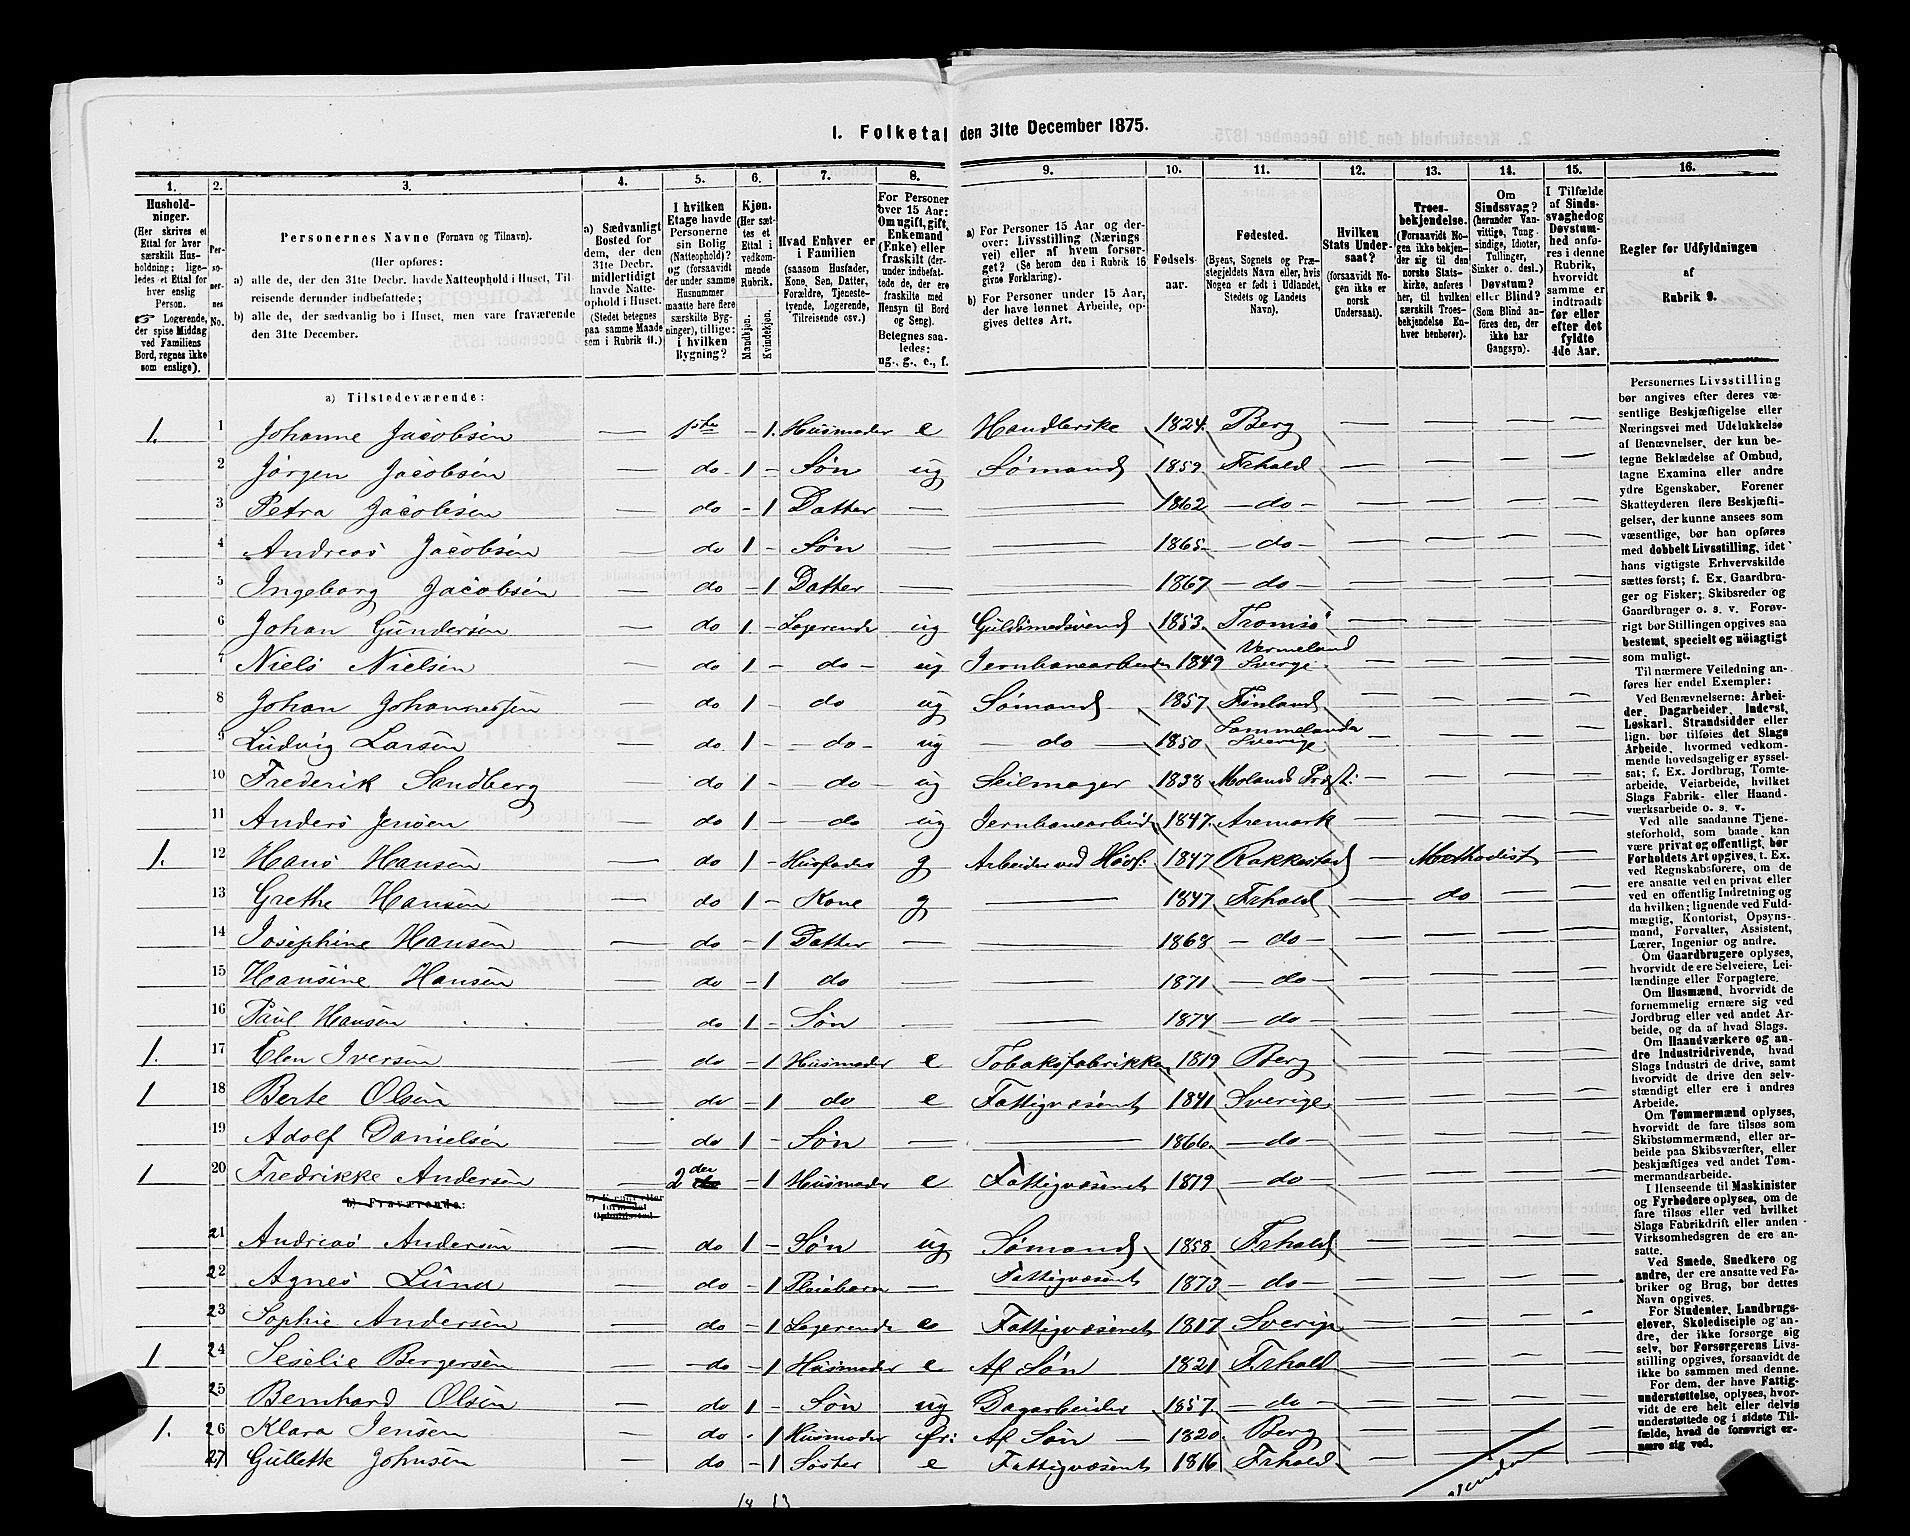 1. Folketal den 31te December 1875.
1. 2. 3. 4. 5. 6. 7. 8. 9. 10. 11. 12. 13. 14. 15. 16.
Hushold-
ninger.
(Her skrives et
Ettal for hver
særskilt Hus-
holdning; lige-
ledes et Ettal for
hver enslig
Person.
☞ Logerende,
der spise Middag
ved Familiens
Bord, regnes ikke
som enslige).
Per-
so-
ner-
nes
No.
Personernes Navne (Fornavn og Tilnavn).
(Her opføres:
a) alle de, der den 31te Decbr. havde Natteophold i Huset, Til-
reisende derunder indbefattede;
b) alle de, der sædvanlig bo i Huset, men vare fraværende
den 31te December.
a) Sædvanligt
Bosted for
dem, der den
31te Decbr.
midlertidigt
havde Natte-
ophold i Huset.
(Stedet betegnes
paa samme Maade
som i Rubrik 11.)
I hvilken
Etage havde
Personerne
sin Bolig
(Natteophold)?
og (forsaavidt
der under samme
Husnummer
maatte høre flere
særskilte Byg-
ninger), tillige:
i hvilken
Bygning?
Kjøn.
(Her sæt-
tes et
Ettal i
vedkom-
mende
Rubrik.
Mandkjøn.
Kvindekjøn.
Hvad Enhver er
i Familien
(saasom Husfader,
Kone, Søn, Datter,
Forældre, Tjeneste-
tyende, Logerende,
Tilreisende osv.)
For Personer
over 15 Aar:
Om ugift, gift,
Enkemand
(Enke) eller
fraskilt (der-
under indbefat-
tede de, der ere
fraskilte med
Hensyn til Bord
og Seng).
Betegnes saa-
ledes:
ug., g., e., f.
a) For Personer 15 Aar og der-
over: Livsstilling (Nærings-
vei) eller af hvem forsør-
get? (Se herom den i Rubrik 16
givne Forklaring).
b) For Personer under 15 Aar,
der have lønnet Arbeide, op-
gives dettes Art.
Fødsels-
aar.
Fødested.
(Byens, Sognets og Præ-
stegjeldets Navn eller, hvis
Nogen er født i Udlandet,
Stedets og Landets
Navn).
Hvilken
Stats Under-
saat?
(forsaavidt No-
gen ikke er
norsk
Undersaat).
Troes-
bekjendelse.
(Forsaavidt No-
gen ikke bekjen-
der sig til den
norske Stats-
kirke, anføres
her, til hvilken
særskilt Troes-
bekjendelse En-
hver henhører).
Om
Sindssvag?
(herunder Van-
vittige, Tung-
sindige, Idioter,
Tullinger,
Sinker o. desl.)
Døvstum?
eller Blind?
(Som Blind an-
føres den, der
ikke har
Gangsyn).
I Tilfælde
af Sinds-
svaghed og
Døvstum-
hed anfø-
res i denne
Rubrik,
hvorvidt
samme er
indtraadt
før eller
efter det
fyldte
4de Aar.
Regler før Udfyldningen
af
Rubrik 9.
a) Tilstedeværende:
1. 1 Johanne Jacobsen — 1ste - 1. Husmoder e Handlerske 1824. Berg — — — —
2 Jørgen Jacobsen — do 1 - Søn ug Sømand 1859 Frhald — — — —
3 Petra Jacobsen — do - 1 Datter — — 1862 — do — — — — —
4 Andreas Jacobsen — do 1 - Søn — — 1865 — do — — — — —
5 Ingeborg Jacobsen — do - 1 Datter — — 1867 — do — — — — —
6 Johan Gundersen — do 1 - Logerende ug Guldsmedsvend 1853. Tromsø — — — —
7 Niels Nielsen — do 1 - do - ug Jernbanearbeider 1849 Vermeland Sverge — — — —
8 Johan Johannessen — do 1 - do ug Sømand 1857 Finland — — — —
9 Ludvig Larsen — do 1 - do - ug — do — 1850 Sverige — — — —
10 Frederik Sandberg — do 1 - do - ug Seilmager 1838 Molands Præst: — — — —
11 Anders Jensen — do 1 - do ug Jernbanearbeid 1847. Aremark — — — —
1. 12 Hans Hansen — do 1 - Husfader g Arbeider ved Høvl: 1847 Rakkestad — Methodist — —
13 Grethe Hansen — do 1 - Kone g — 1847 Frhald — do — —
14 Josephine Hansen — do - 1 Datter — — 1868 — do — — — — —
15 Hansine Hansen — do - 1 do — — 1871 — do — — — — —
16 Paul Hansen — do 1 - Søn — — 1874 — do — — — — —
1. 17 Elen Iversen — do - 1 Husmoder e Tobaksfabrikken 1819 Berg — — — —
1 18 Berte Olsen — do - 1 do e Fattigvæsenet 1841 Sverige — — — —
19 Adolf Danielsen — do 1 - Søn — — 1866 — do — — — — —
1 20 Fredrikke Andersen — 2den - 1 Husmoder e Fattigvæsenet 1819 — do — — — — —
b) Fraværende:
b) Formodet eller
Opholdssted.
21 Andreas Andersen — do 1 - Søn ug Sømand 1858 Frhald — — — —
22 Agnes Lund — do - 1 Pleiebarn — Fattigvæsenet 1873 — do — — — — —
23 Sophie Andersen — do - 1 Logerende e Fattigvæsenet 1817 Sverige — — — —
1 24 Seselie Bergersen — do - 1 Husmoder e Af Søn 1821 Frhald — — — —
25 Bernhard Olsen — do 1 - Søn ug Dagarbeider 1857 — do — — — — —
1. 26 Klara Jensen — do - 1 Husmoder fr: Af Søn — 1820. Berg — — — —
27 Gullette Johnsen — do - 1 Søster e Fattigvæsenet 1816 Frhald — — — —
14 13
Personernes Livsstilling
bør angives efter deres væ-
sentlige Beskjæftigelse eller
Næringsvei med Udelukkelse
af Benævnelser, der kun be-
tegne Beklædelse af Ombud,
tagne Examina eller andre
ydre Egenskaber. Forener
Skatteyderen flere Beskjæfti-
gelser, der kunne ansees som
væsentlige, bør han opføres
med dobbelt Livsstilling, idet
hans vigtigste Erhvervskilde
sættes først; f. Ex. Gaardbru-
ger og Fisker; Skibsreder og
Gaardbruger o. s. v. Forøv-
rigt bør Stillingen opgives saa
bestemt, specielt og nöiagtigt
som muligt.
Til nærmere Veiledning an-
føres her endel Exempler:
Ved Benævnelserne: Arbei-
der, Dagarbeider, Inderst,
Løskarl, Strandsidder eller
lign. bør tilføies det Slags
Arbeide, hvormed vedkom-
mende hovedsagelig er syssel-
sat; f. Ex. Jordbrug, Tomte-
arbeide, Veiarbeide, hvilket
Slags Fabrik- eller Haand-
værksarbeide o. s. v.
Ved alle saadanne Tjene-
steforhold, som baade kan
være privat og offentligt, bør
Forholdets Art opgives, t. Ex.
ved Regnskabsførere, om de
ere ansatte ved en privat eller
ved en offentlig Indretning og
da hvilken; lignende ved Fuld-
mægtig, Kontorist, Opsyns-
mand, Forvalter, Assistent,
Lærer, Ingeniør og andre.
Om Gaardbrugere oplyses,
hvorvidt de ere Selveiere, Lei-
lændinge eller Forpagtere.
Om Husmænd, hvorvidt de
fornemmelig ernære sig ved
Jordbrug eller ved andet Ar-
beide, og da af hvad Slags.
Om Haandværkere og an-
dre Industridrivende, hvad
Slags Industri de drive, samt
hvorvidt de drive den selv-
stændigt eller ere i andres
Arbeide.
Om Tømmermænd oplyses,
hvorvidt de fare tilsøs som
Skibstømmermænd, eller ar-
beide paa Skibsværfter, eller
beskjæftiges ved andet Tøm-
mermandsarbeide.
I Henseende til Maskinister
og Fyrbødere oplyses, om de
fare tilsøs eller ved hvilket
Slags Fabrikdrift eller anden
Virksomhedsgren de ere an-
satte.
Ved Smede, Snedkere og
andre, der ere ansatte ved Fa-
briker og Brug, bør dettes
Navn opgives.
For Studenter, Landbrugs-
elever, Skoledisciple og an-
dre, der ikke forsørge sig
selv, bør Forsørgerens Livs-
stilling opgives, forsaavidt de
ikke bo sammen med denne.
For dem, der have Fattig-
understøttelse, oplyses, hvor-
vidt de ere helt eller delvis
understøttede og i sidste Til-
fælde, hvad de forøvrigt er-
nære sig ved.